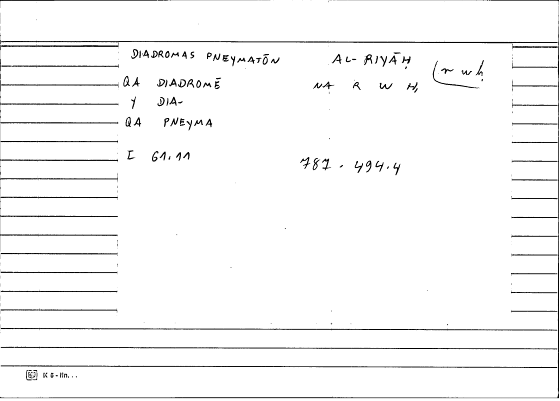 DIADROMAS PNEYMATŌN AL-RIYĀḤ (r w ḥ
QA DIADROMĒ NA R W Ḥ,
Y DIA-
QA PNEYMA
I 61.11 787.494.4
K 6